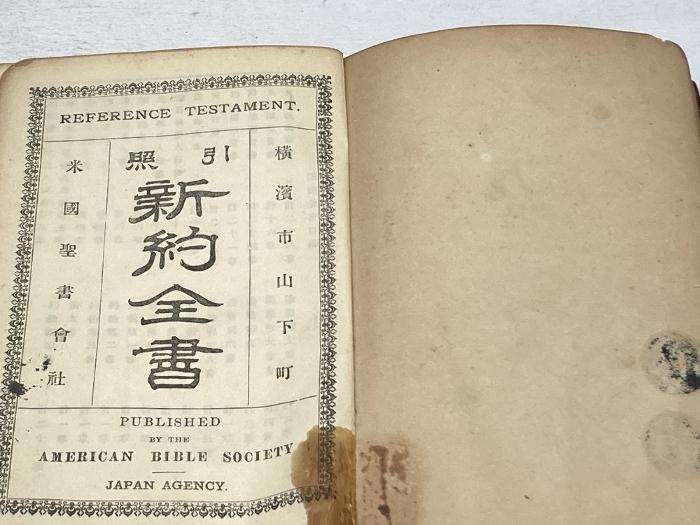 REFERENCE TESTAMENT.
横濱市山下町
引照
新約全書
米國聖書會社
PUBLISHED
BY THE
AMERICAN BIBLE SOCIETY
JAPAN AGENCY.